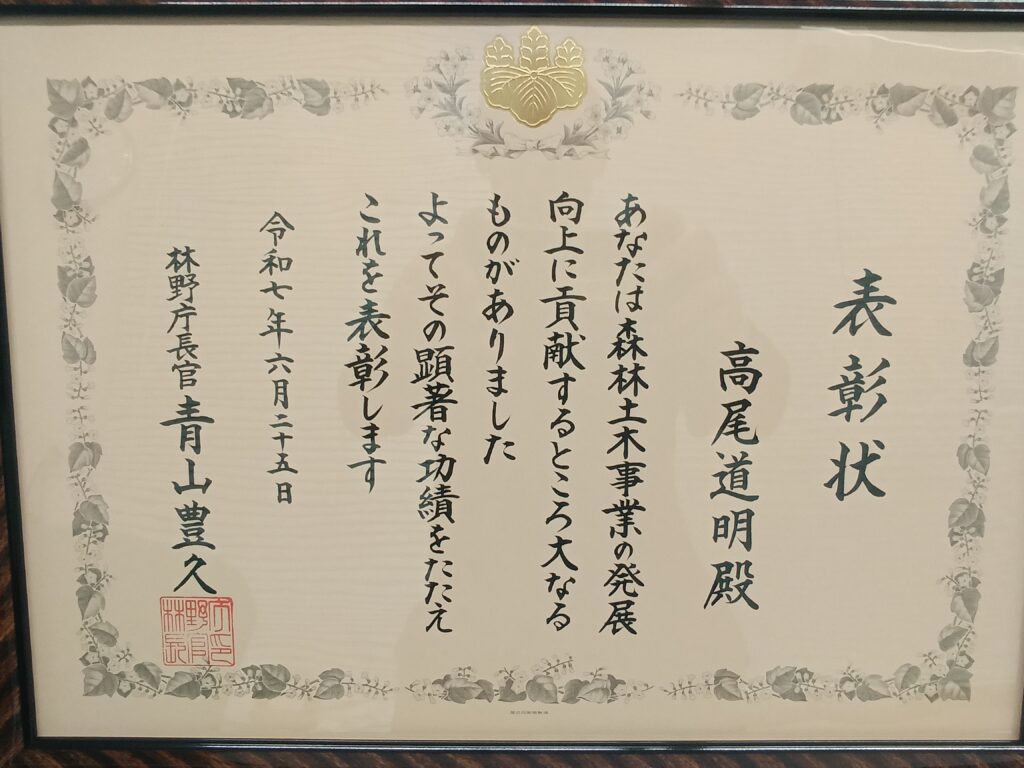 表彰状
高尾道明殿
あなたは森林土木事業の発展
向上に貢献するところ大なる
ものがありました
よってその顕著な功績をたたえ
これを表彰します
令和七年六月二十五日
林野庁長官 青山豊久